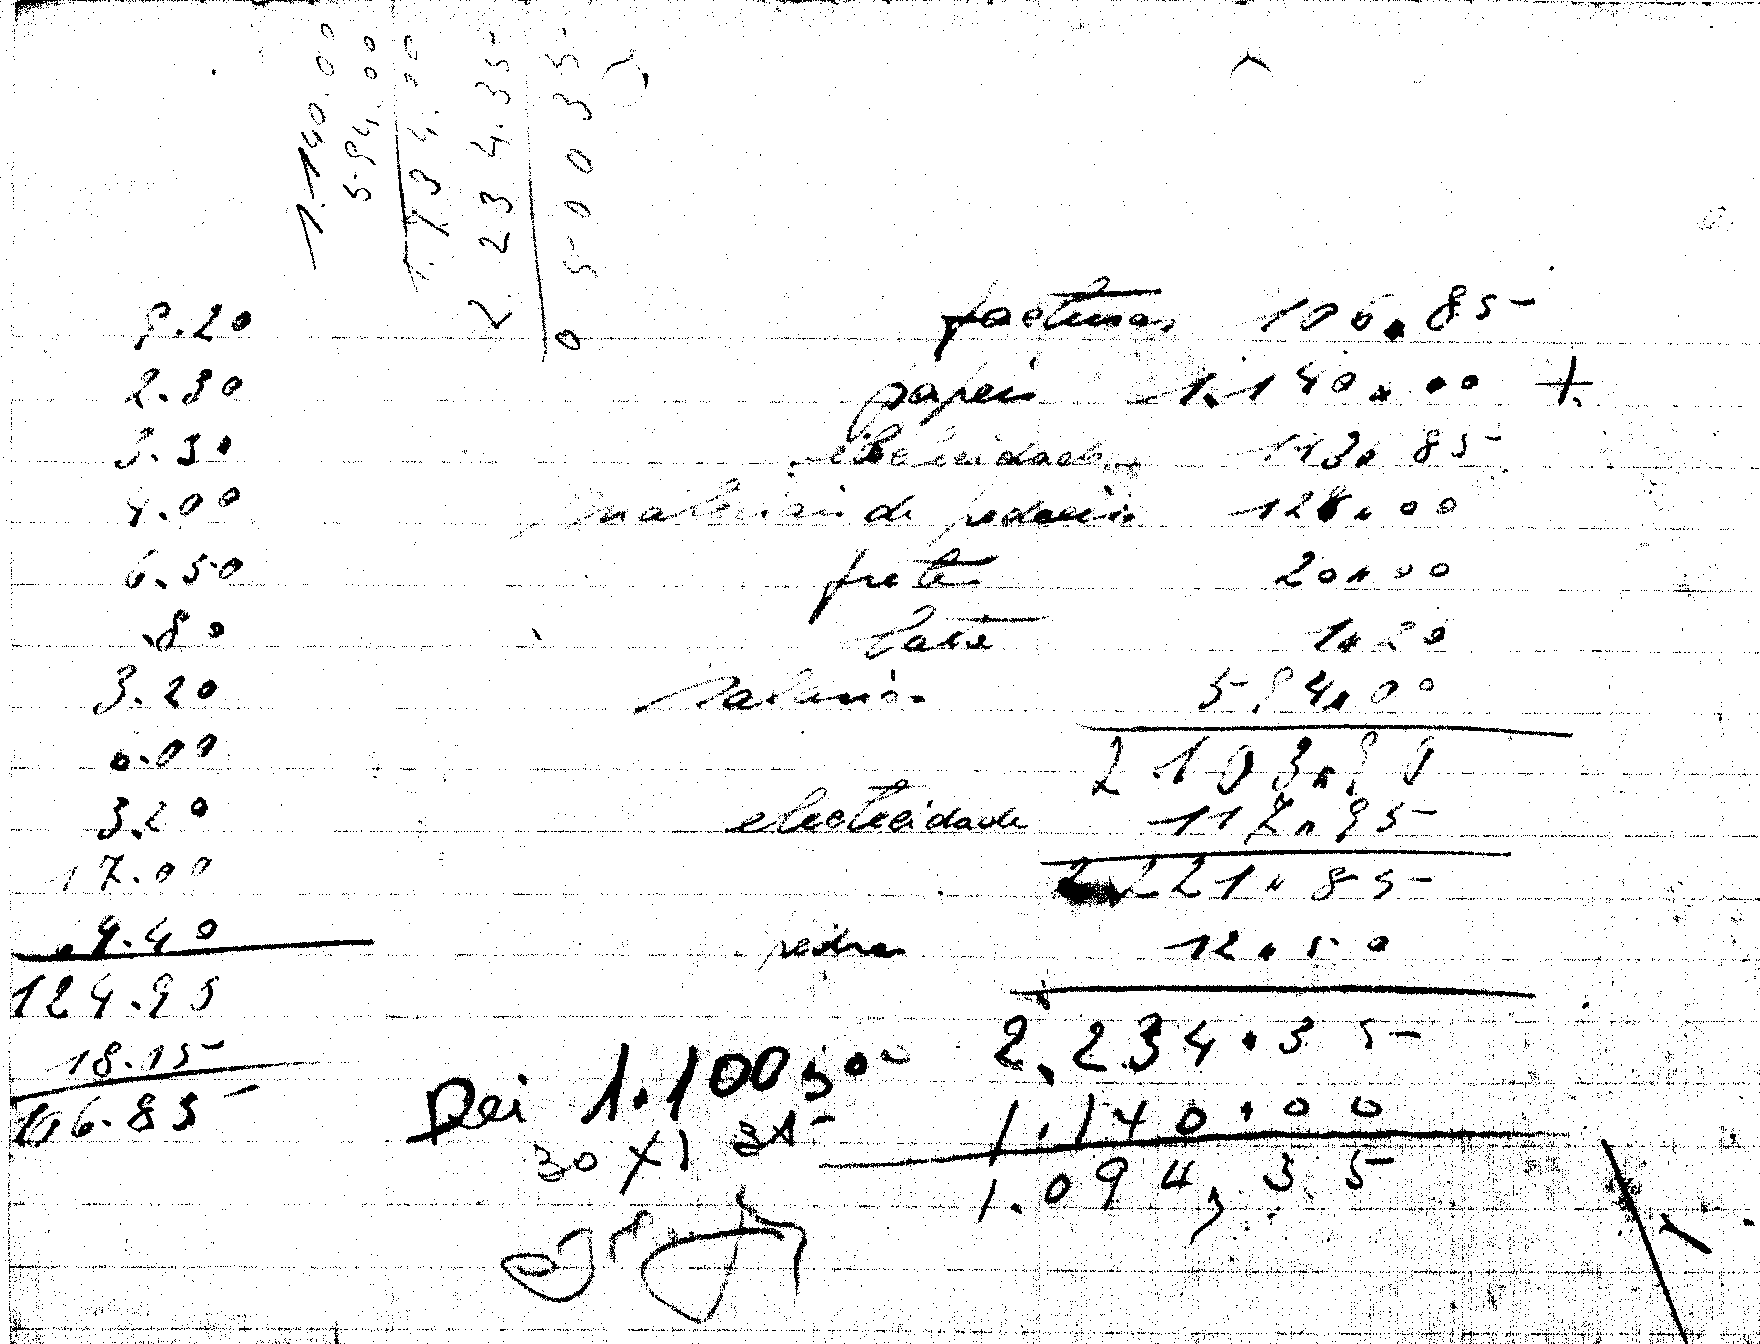 1.140.00
594.00
1.734.00
2 234.35
0 500 35
9.20
2.30
3.30
4.00
6.50
.80
3.20
0.00
3.20
17.00
9.40
124.95
18.15
106.85
facturas 106.85
papeis 1.140.00 +
113.85
de 128.00
frete 20.00
1.20
salarios 594.00
2103.90
electricidade 117.95
2.221.85
pedra 12.50
2.234.35
1.140.00
1.094,35
Dei 1.100,00
30 XI 35